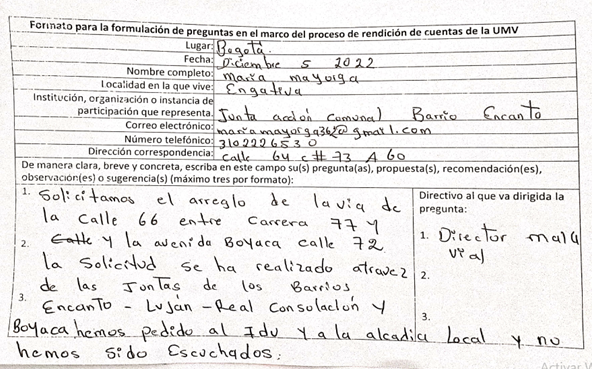 Formato para la formulación de preguntas en el marco del proceso de rendición de cuentas de la UMV
Lugar: Bogotá.
Fecha: Diciembre 5 2022
Nombre completo: maria mayorga
Localidad en la que vive: Engativa
Institución, organización o instancia de
participación que representa. Junta acción comunal Barrio Encanto
Correo electrónico: mariamayorga362@gmail.com
Número telefónico: 3102226530
Dirección correspondencia: calle 64 c # 73 A 60
De manera clara, breve y concreta, escriba en este campo su(s) pregunta(as), propuesta(s), recomendación(es),
observación(es) o sugerencia(s) (máximo tres por formato):
1. Solicitamos el arreglo de la via de
la calle 66 entre Carrera 77 y
2. Calle y la avenida Boyaca calle 72.
la Solicitud se ha realizado atravez
de las Juntas de los Barrios
3. Encanto - Luján - Real Consolación y
Boyaca hemos pedido al Idu y a la alcadia Local y no
hemos sido Escuchados.
Directivo al que va dirigida la
pregunta:
1. Director malla
vial
2.
3.
Activar